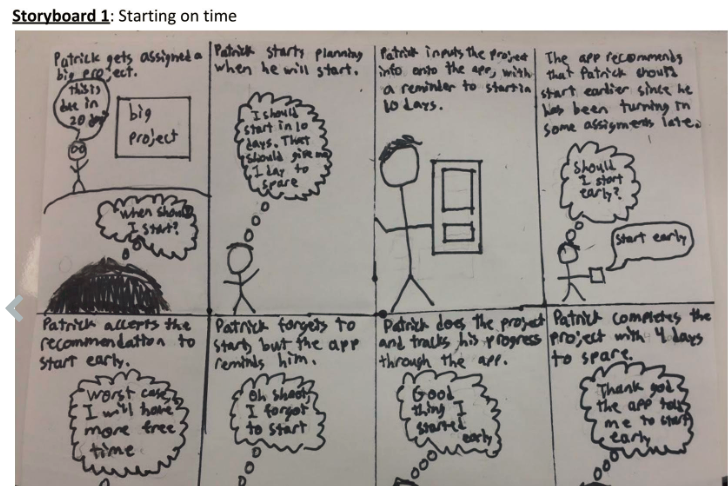 Storyboard 1: Starting on time
Patrick gets assigned a
big project.
This is
due in
20 days
big
project
When should
I start?
Patrick starts planning
when he will start.
I should
start in 10
days. That
should give me
1 day to
spare
Patrick inputs the project
info onto the app, with
a reminder to start in
10 days.
The app recommends
that Patrick should
start earlier since he
has been turning in
some assigments late.
Should
I start
early?
Start early
Patrick accepts the
recommendation to
start early.
Worst case
I will have
more free
time
Patrick forgets to
start, but the app
reminds him.
Oh shoot
I forgot
to start
Patrick does the project
and tracks his progress
through the app.
Good
thing I
started
early
Patrick completes the
project with 4 days
to spare.
Thank god
the app told
me to start
early